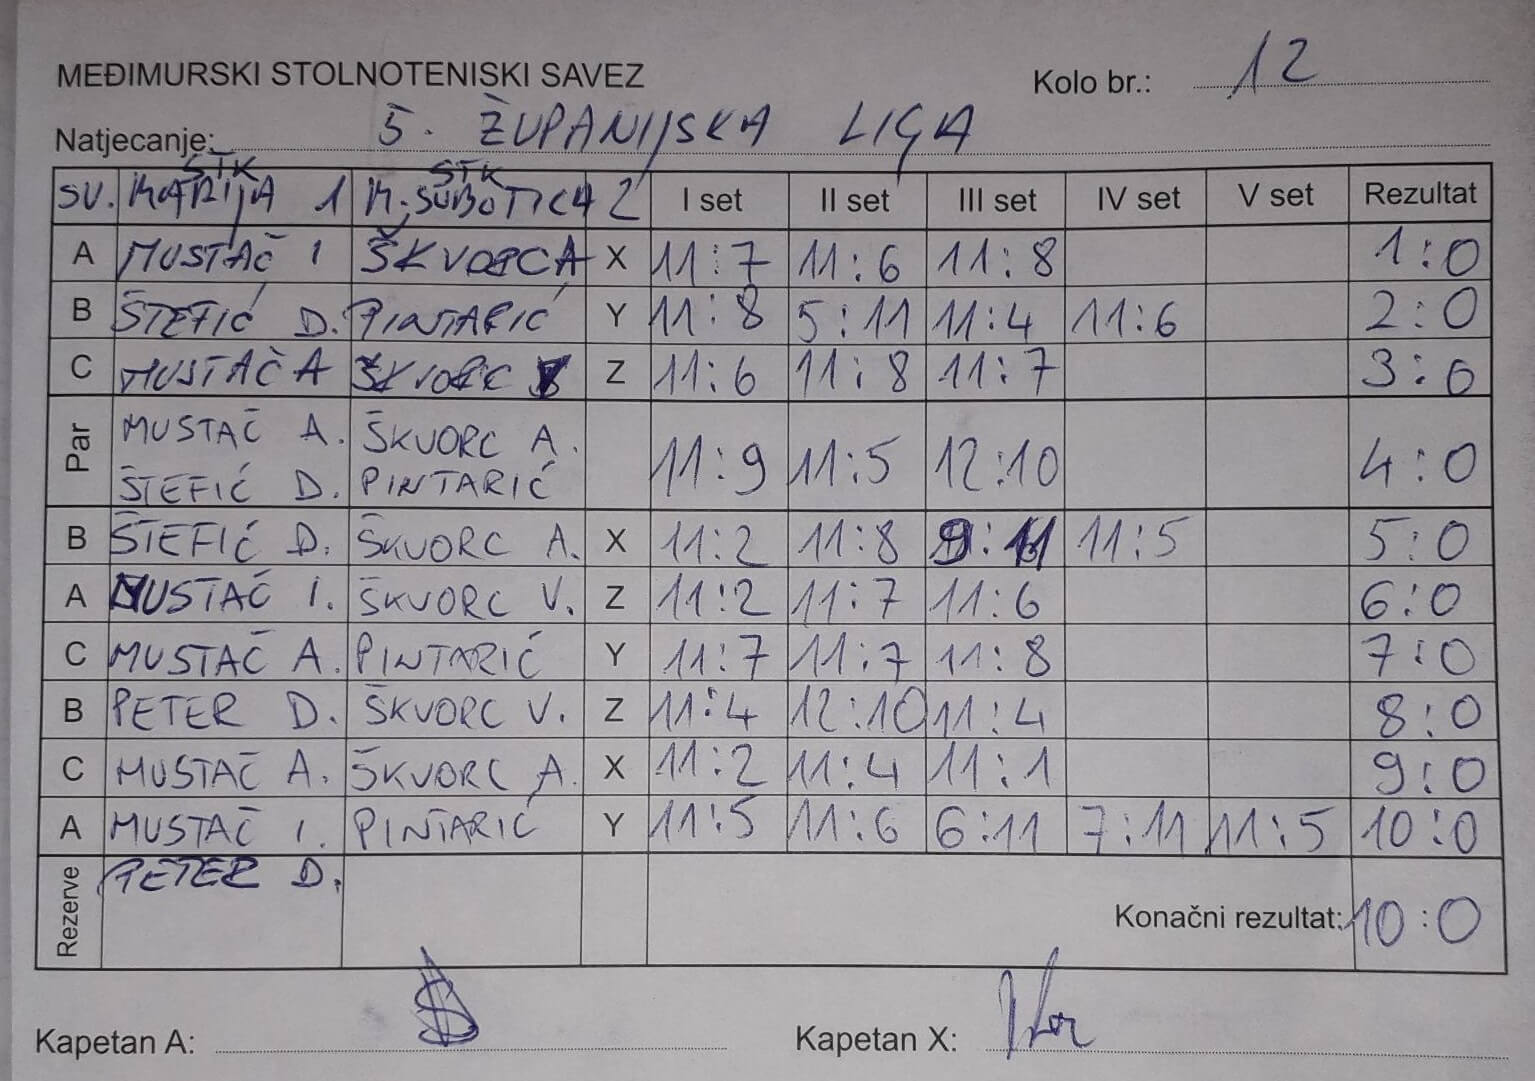 MEĐIMURSKI STOLNOTENISKI SAVEZ Kolo br.: 12
Natjecanje: 5. ŽUPANIJSKA LIGA
STK STK
SV. MARIJA 1 M. SUBOTICA 2 I set II set III set IV set V set Rezultat
A MUSTAČ I ŠKVORC A X 11:7 11:6 11:8 1:0
B ŠTEFIĆ D. PINTARIĆ Y 11:8 5:11 11:4 11:6 2:0
C MUSTAČ A ŠKVORC V Z 11:6 11:8 11:7 3:0
Par MUSTAČ A. ŠKVORC A. 11:9 11:5 12:10 4:0
ŠTEFIĆ D. PINTARIĆ
B ŠTEFIĆ D. ŠKVORC A. X 11:2 11:8 9:11 11:5 5:0
A MUSTAČ I. ŠKVORC V. Z 11:2 11:7 11:6 6:0
C MUSTAČ A. PINTARIĆ Y 11:7 11:7 11:8 7:0
B PETER D. ŠKVORC V. Z 11:4 12:10 11:4 8:0
C MUSTAČ A. ŠKVORC A. X 11:2 11:4 11:1 9:0
A MUSTAČ I. PINTARIĆ Y 11:5 11:6 6:11 7:11 11:5 10:0
Rezerve PETER D.
Konačni rezultat: 10:0
Kapetan A: Kapetan X: